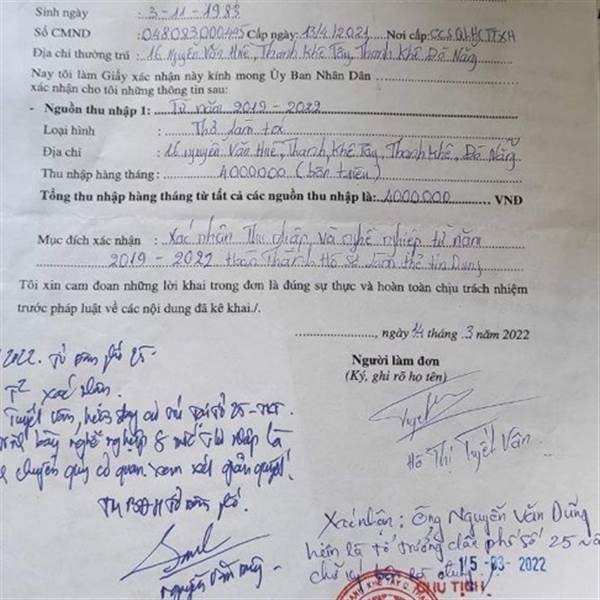 Sinh ngày : 3-11-1983
Số CMND : 048083000445 Cấp ngày: 13/4/2021 Nơi cấp: CCSQLHCTTXH
Địa chỉ thường trú : 16 Nguyễn Văn Huê, Thanh Khê Tây, Thanh Khê Đà Nẵng
Nay tôi làm Giấy xác nhận này kính mong Ủy Ban Nhân Dân
xác nhận cho tôi những thông tin sau:
- Nguồn thu nhập 1: Từ năm 2019 - 2022
Loại hình : Thợ làm tóc
Địa chỉ : 16 Nguyễn Văn Huê, Thanh Khê Tây, Thanh Khê, Đà Nẵng
Thu nhập hàng tháng : 4000000 (bốn triệu)
Tổng thu nhập hàng tháng từ tất cả các nguồn thu nhập là: 4000000 VNĐ
Mục đích xác nhận : Xác nhận Thu nhập và nghề nghiệp từ năm
2019 - 2022 Hoàn Thành Hồ Sơ làm thẻ tín Dụng
Tôi xin cam đoan những lời khai trong đơn là đúng sự thực và hoàn toàn chịu trách nhiệm
trước pháp luật về các nội dung đã kê khai./.
, ngày 14 tháng 3 năm 2022
Người làm đơn
(Ký, ghi rõ họ tên)
Hồ Thị Tuyết Vân
2022. Tổ dân phố 25
xác nhân
Tuyết Vân, hiện đang cư trú tại tổ 25
nghề nghiệp & mức thu nhập là
chuyển quý cơ quan xem xét giải quyết.
TM BĐH tổ dân phố
Xác nhận: Ông Nguyễn Văn Dũng
hiện là tổ trưởng dân phố số 25 và
chữ ký là đúng
15-03-2022
CHỦ TỊCH